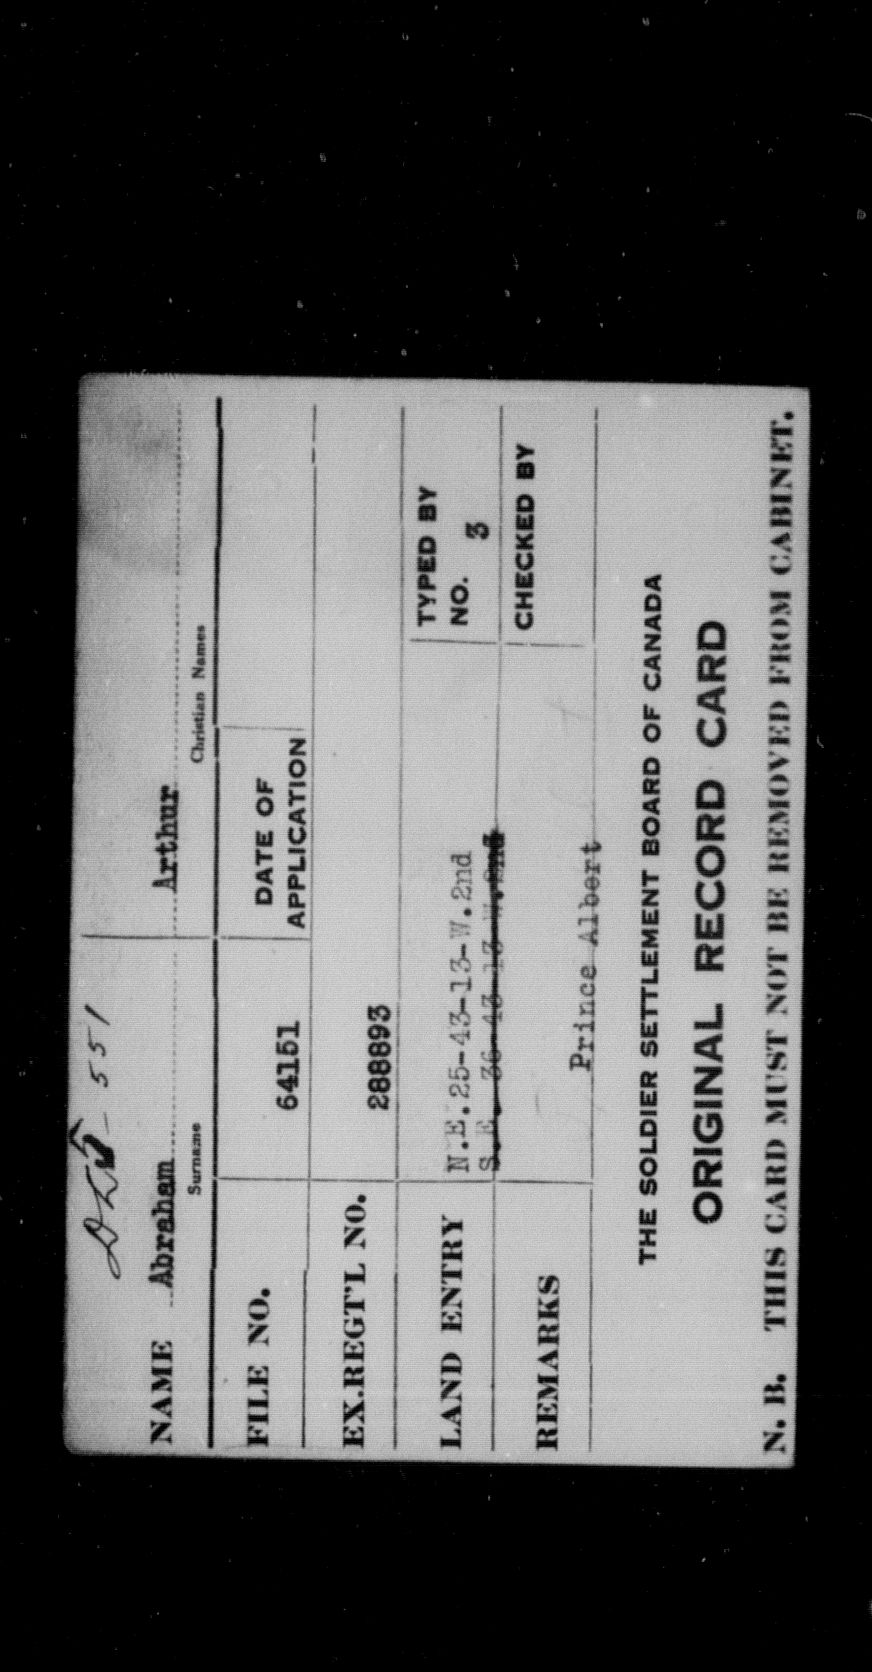 551
NAME Abraham Arthur
Surname Christian Names
FILE NO. 64151 DATE OF APPLICATION
EX.REGT'L NO. 288893
LAND ENTRY N.E.25-43-13-W.2nd TYPED BY
S.E. 36-43-13-W.2nd NO. 3
REMARKS CHECKED BY
Prince Albert
THE SOLDIER SETTLEMENT BOARD OF CANADA
ORIGINAL RECORD CARD
N. B. THIS CARD MUST NOT BE REMOVED FROM CABINET.